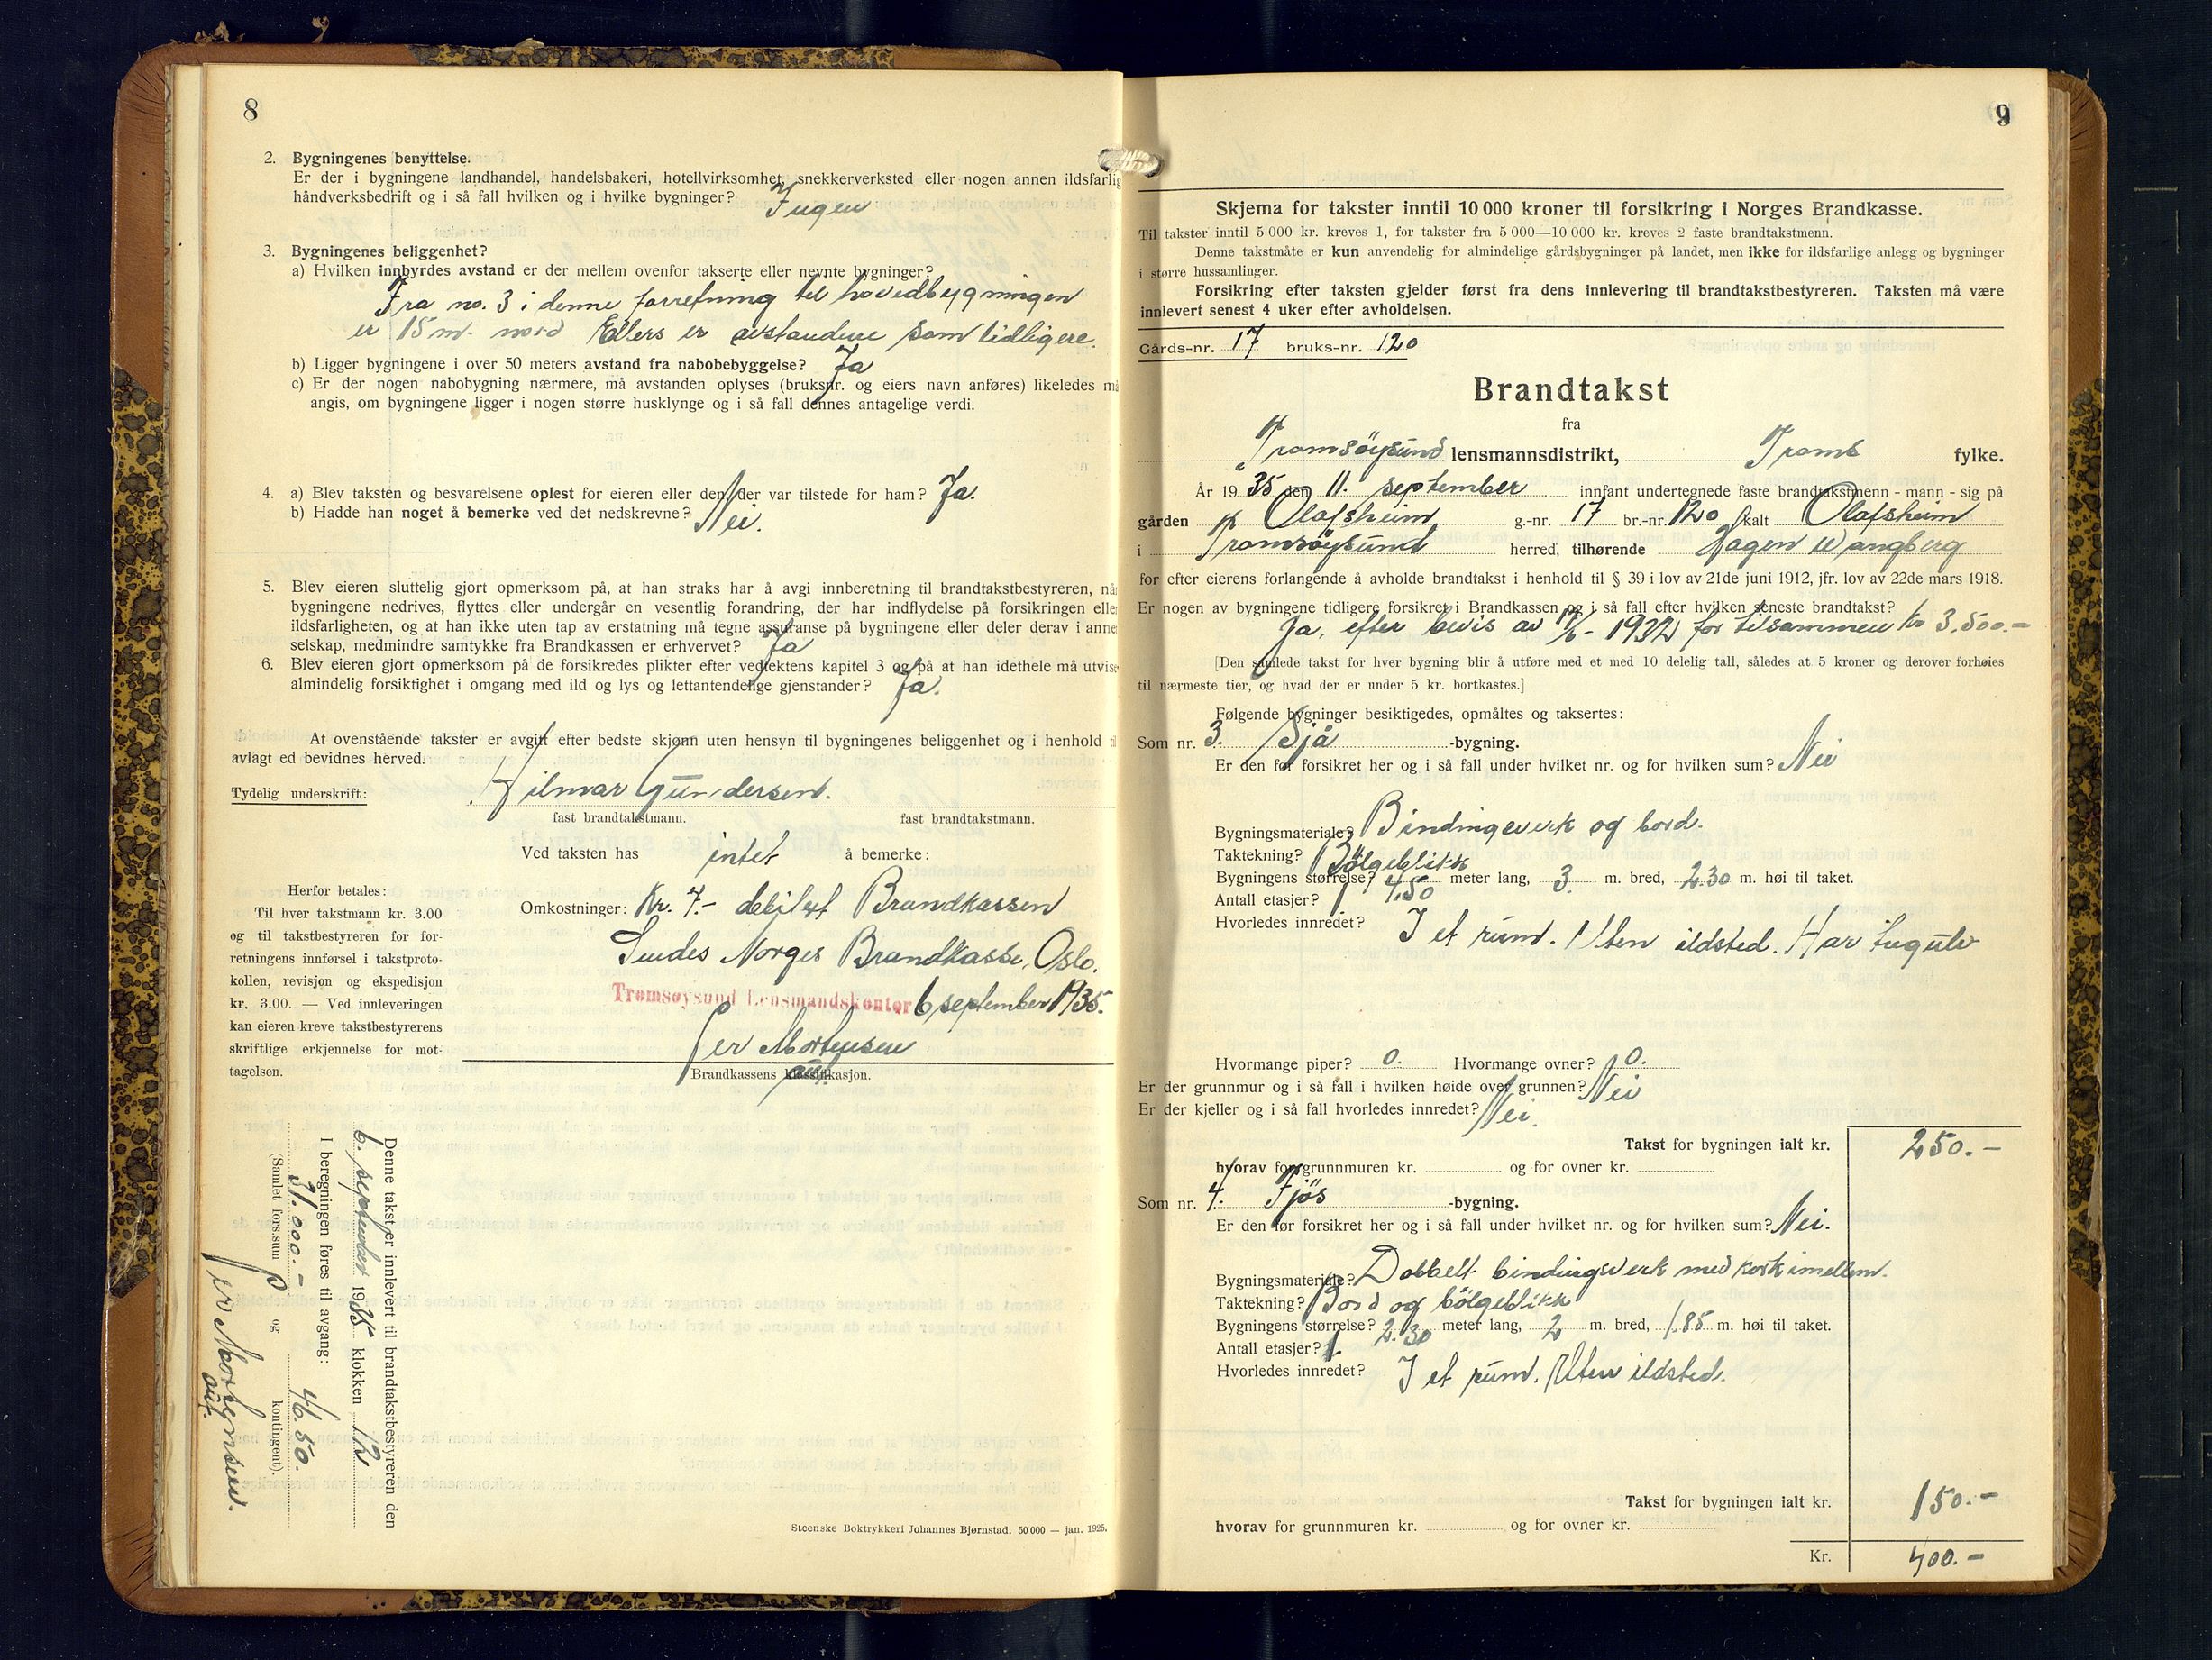 8
2. Bygningenes benyttelse.
Er der i bygningene landhandel, handelsbakeri, hotellvirksomhet, snekkerverksted eller nogen annen ildsfarlig
håndverksbedrift og i så fall hvilken og i hvilke bygninger? Ingen
3. Bygningenes beliggenhet?
a) Hvilken innbyrdes avstand er der mellem ovenfor takserte eller nevnte bygninger?
Fra no. 3 i denne forretning til hovedbygningen
er 15 m. nord Ellers er avstandene som tidligere.
b) Ligger bygningene i over 50 meters avstand fra nabobebyggelse? Ja
c) Er der nogen nabobygning nærmere, må avstanden oplyses (bruksnr. og eiers navn anføres) likeledes må
angis, om bygningene ligger i nogen større husklynge og i så fall dennes antagelige verdi.
4. a) Blev taksten og besvarelsene oplest for eieren eller den, der var tilstede for ham? Ja.
b) Hadde han noget å bemerke ved det nedskrevne? Nei.
5. Blev eieren sluttelig gjort opmerksom på, at han straks har å avgi innberetning til brandtakstbestyreren, når
bygningene nedrives, flyttes eller undergår en vesentlig forandring, der har indflydelse på forsikringen eller
ildsfarligheten, og at han ikke uten tap av erstatning må tegne assuranse på bygningene eller deler derav i anne
selskap, medmindre samtykke fra Brandkassen er erhvervet? Ja
6. Blev eieren gjort opmerksom på de forsikredes plikter efter vedtektens kapitel 3 og på at han idethele må utvise
almindelig forsiktighet i omgang med ild og lys og lettantendelige gjenstander? Ja.
At ovenstående takster er avgitt efter bedste skjønn uten hensyn til bygningenes beliggenhet og i henhold ti
avlagt ed bevidnes herved.
Tydelig underskrift: Hilmar Gundersen.
fast brandtakstmann. fast brandtakstmann.
Ved taksten has intet å bemerke:
Omkostninger: Kr. 7.- debitert Brandkassen
Sendes Norges Brandkasse, Oslo.
Tromsøysund Lensmandskontor 6 september 1935.
Per Mortensen
aut.
Brandkassens klassifikasjon.
Herfor betales:
Til hver takstmann kr. 3.00
og til takstbestyreren for for-
retningens innførsel i takstproto-
kollen, revisjon og ekspedisjon
kr. 3.00. — Ved innleveringen
kan eieren kreve takstbestyrerens
skriftlige erkjennelse for mot-
tagelsen.
Denne takst er innlevert til brandtakstbestyreren den
6. september 1935 klokken 12
I beregningen føres til avgang:
31.000.- 46.50.
(Samlet fors.sum og kontingent).
Per Mortensen.
aut.
Steenske Boktrykkeri Johannes Bjørnstad. 50 000 — jan. 1925.
9
Skjema for takster inntil 10 000 kroner til forsikring i Norges Brandkasse.
Til takster inntil 5 000 kr. kreves 1, for takster fra 5 000—10 000 kr. kreves 2 faste brandtakstmenn.
Denne takstmåte er kun anvendelig for almindelige gårdsbygninger på landet, men ikke for ildsfarlige anlegg og bygninger
i større hussamlinger.
Forsikring efter taksten gjelder først fra dens innlevering til brandtakstbestyreren. Taksten må være
innlevert senest 4 uker efter avholdelsen.
Gårds-nr. 17 bruks-nr. 120
Brandtakst
fra
Tromsöysund lensmannsdistrikt, Troms fylke.
År 1935 den 11. september innfant undertegnede faste brandtakstmenn - mann - sig på
gården Olafsheim g.-nr. 17 br.-nr. 120 kalt Olafsheim
i Tromsöysund herred, tilhørende Hagen Wangberg
for efter eierens forlangende å avholde brandtakst i henhold til § 39 i lov av 21de juni 1912, jfr. lov av 22de mars 1918.
Er nogen av bygningene tidligere forsikret i Brandkassen og i så fall efter hvilken seneste brandtakst?
Ja, efter bevis av 17/6 - 1932 for tilsammen kr 3.500.-
[Den samlede takst for hver bygning blir å utføre med et med 10 delelig tall, således at 5 kroner og derover forhøies
til nærmeste tier, og hvad der er under 5 kr. bortkastes.]
Følgende bygninger besiktigedes, opmåltes og taksertes:
Som nr. 3. Sjå -bygning.
Er den før forsikret her og i så fall under hvilket nr. og for hvilken sum? Nei
Bygningsmateriale? Bindingsverk og bord.
Taktekning? Bölgeblikk
Bygningens størrelse? 4,50 meter lang, 3. m. bred, 2.30 m. høi til taket.
Antall etasjer? 1
Hvorledes innredet? I et rum. Uten ildsted. Har tregulv
Hvormange piper? 0. Hvormange ovner? 0.
Er der grunnmur og i så fall i hvilken høide over grunnen? Nei
Er der kjeller og i så fall hvorledes innredet? Nei.
Takst for bygningen ialt kr. 250.-
hvorav for grunnmuren kr. og for ovner kr.
Som nr. 4. Fjös -bygning.
Er den før forsikret her og i så fall under hvilket nr. og for hvilken sum? Nei.
Bygningsmateriale? Dobbelt bindingsverk med kork imellem.
Taktekning? Bord og bölgeblikk
Bygningens størrelse? 2.30 meter lang, 2 m. bred, 1.85 m. høi til taket.
Antall etasjer? 1
Hvorledes innredet? I et rum. Uten ildsted.
Takst for bygningen ialt kr. 150.-
hvorav for grunnmuren kr. og for ovner kr.
Kr. 400.-